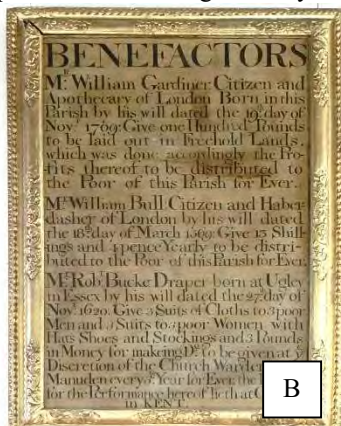 BENEFACTORS
Mr. William Gardiner Citizen and
Apothecary of London Born in this
Parish by his will dated the 19th day of
Novr. 1709. Give one Hundred Pounds
to be laid out in Freehold Lands,
which was done accordingly the Pro-
fits thereof to be distributed to
the Poor of this Parish for Ever.
Mr. William Bull Citizen and Haber
dasher of London by his will dated
the 18th day of March Give 13 Shill-
ings and 4 pence Yearly to be distri-
buted to the Poor of this Parish for Ever.
Mr. Robt. Bucke Draper born at Ugley
in Essex by his will dated the 27th day of
Novr. 1620. Give 3 Suits of Cloths to 3 poor
Men and 3 Suits to 3 poor Women with
Hats Shoes and Stockings and 3 Pounds
in Money for makeing Do. to be given at ye
Discretion of the Church Warde
Manuden every 3d Year for Ever, the
for the Performance hereof lieth at
in KENT.
B